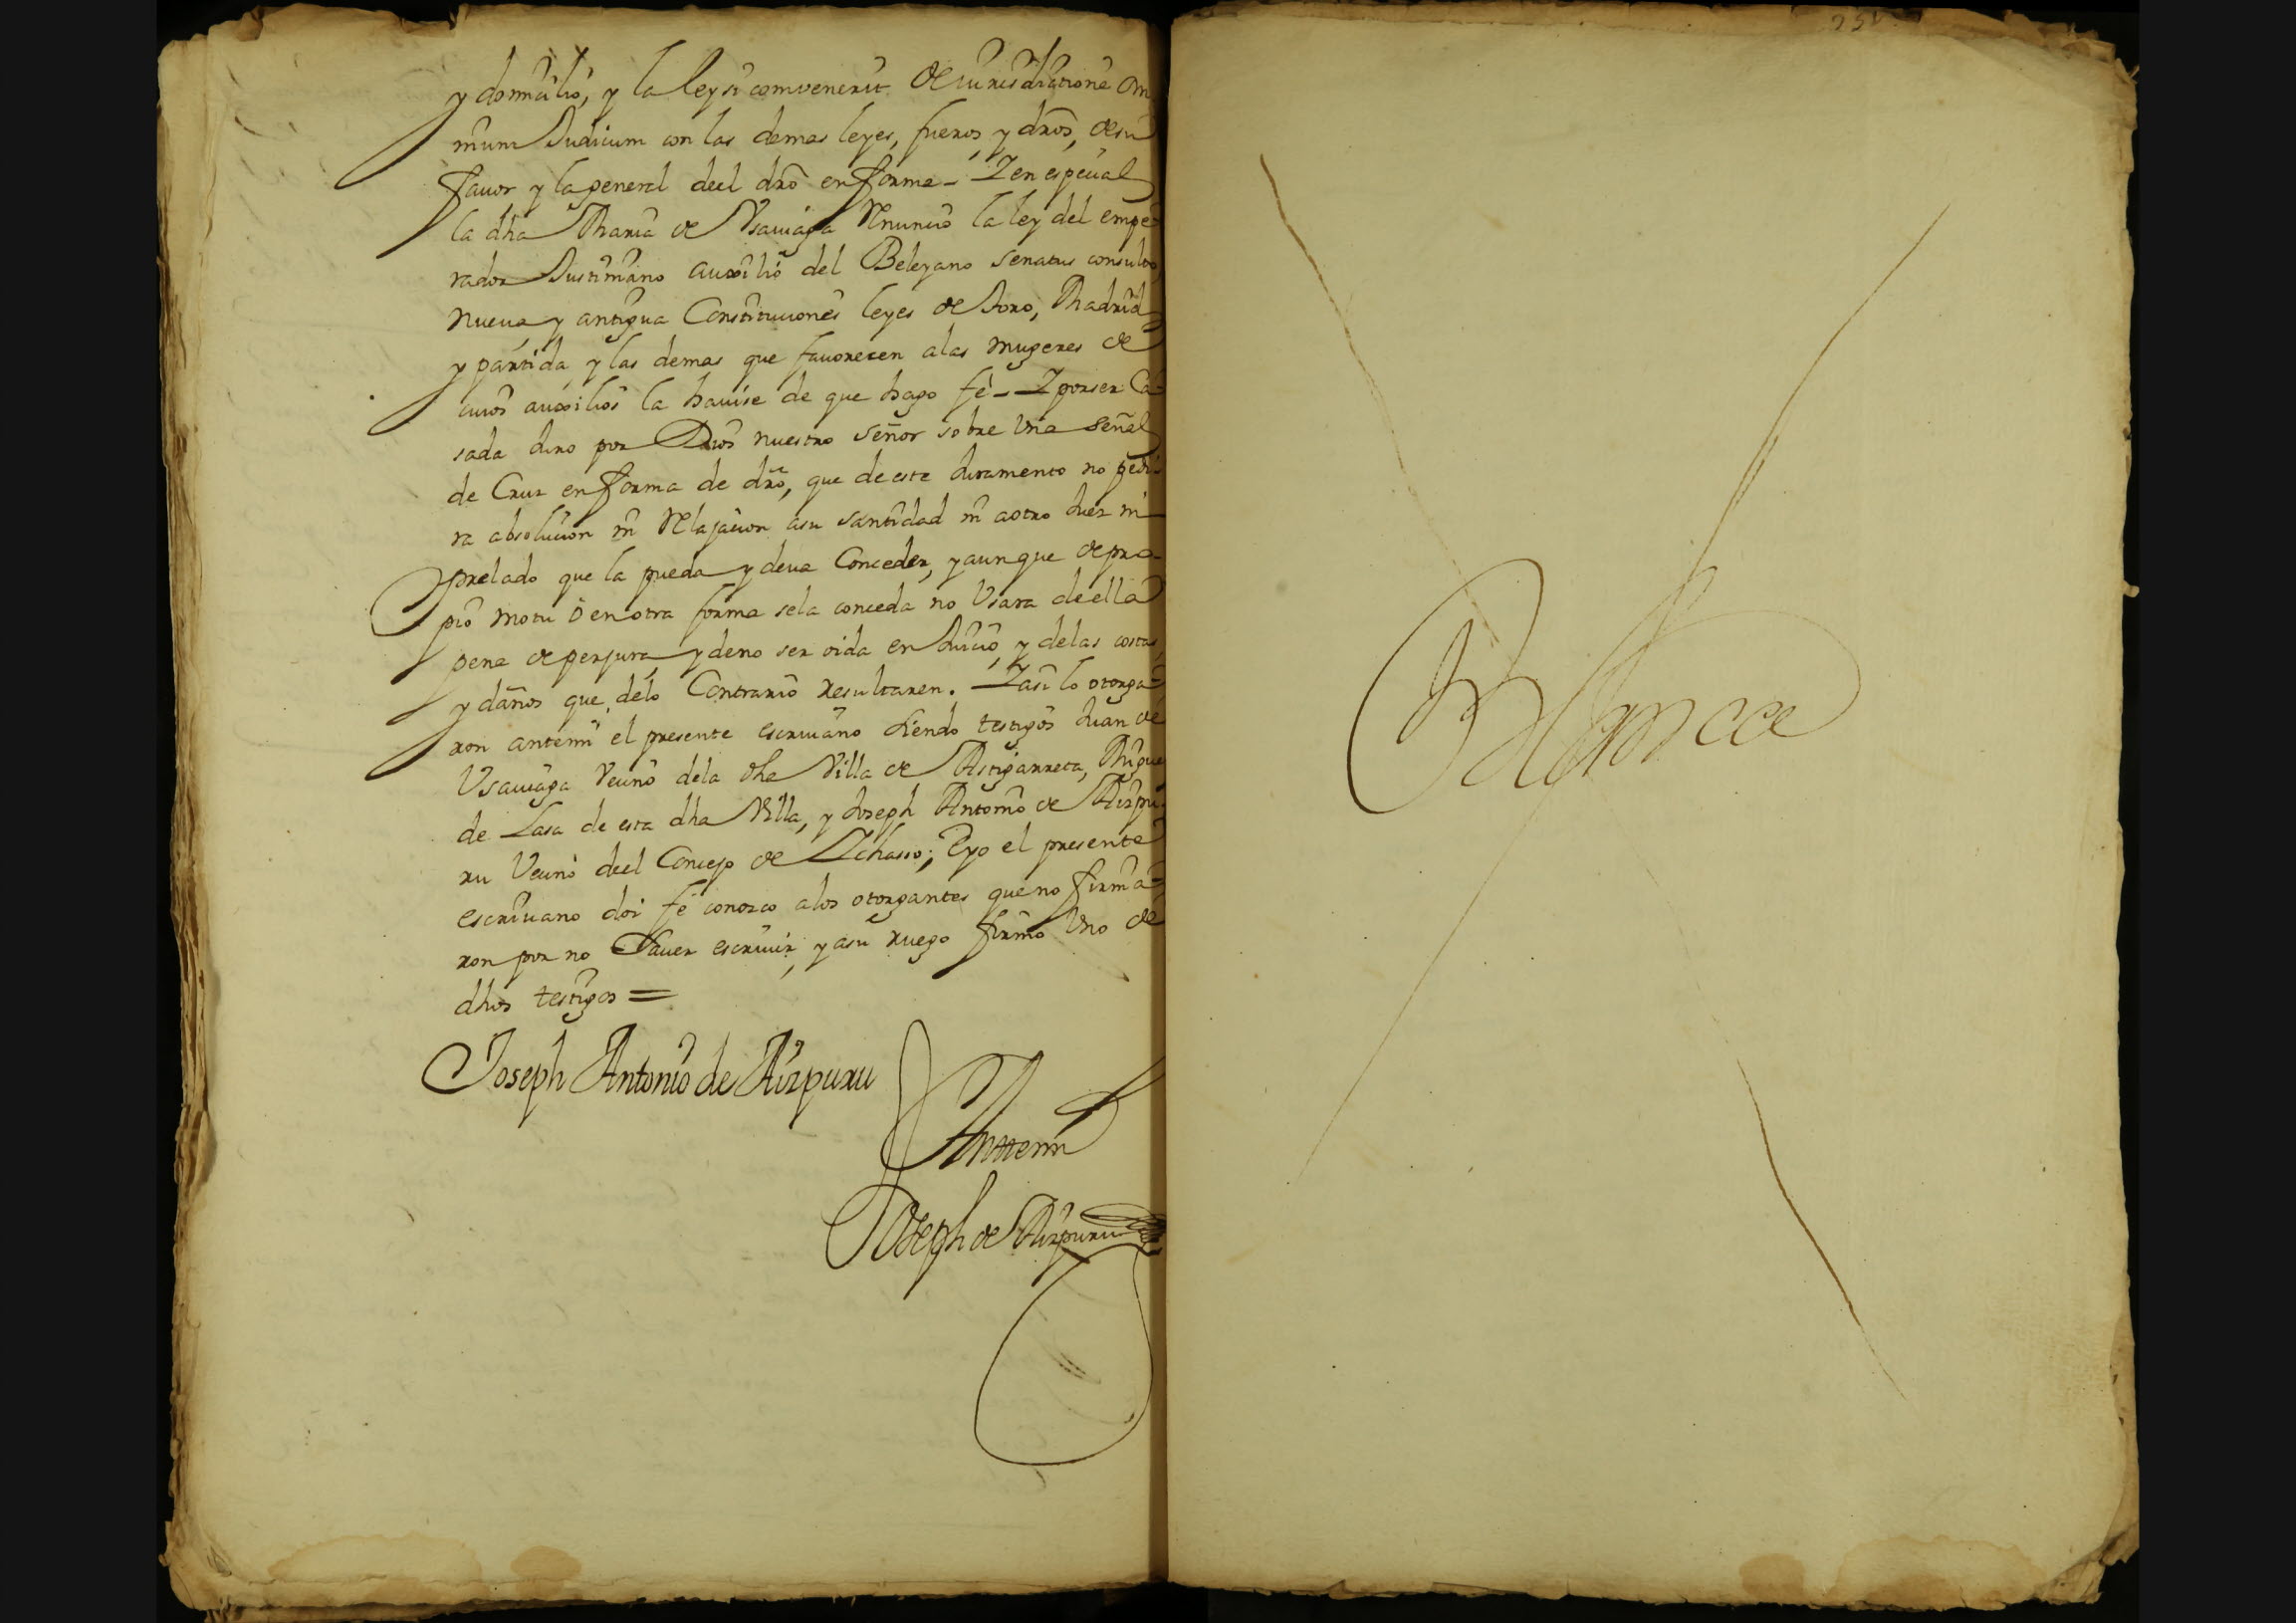 y domicilio, y la ley si combenerit de iurisdictione om
nium Judicum con las demas leyes, fueros, y dros, de su
fauor y la general deel dro en forma - Y en especial
la dha Maria de Vsauiaga Renuncio la ley del empe
rador Justiniano auxilio del Beleyano senatus consulto
nueua y antigua Constituciones leyes de Toro, Madrid
y partida y las demas que fauorecen a las mugeres de
cuios auxilios la hauise de que hago fè - Y por ser Ca
sada Juro por Dios nuestro señor sobre Vna señal
de Cruz en forma de dro, que de este Juramento no pedi
ra absolucion ni Relajacion a su santidad ni a otro Juez ni
prelado que la pueda y deua Conceder, y aunque de pro
pio motu o en otra forma se la conceda no Vsara de ella
pena de perjura, y de no ser oida en Juicio, y de las costas
y daños que de lo Contrario resultaren. Y asi lo otorga
ron antemi el presente escriuano siendo testigos Juan de
Vsauiaga Vecino de la dha Villa de Astigarreta, Migue
de Lasa de esta dha Villa, y Joseph Antonio de Aizpu
ru Vecino deel Concejo de Ychasso; E yo el presente
escriuano doi fè conozco a los otorgantes que no firma
ron por no Sauer escriuir, y a su ruego firmo Vno de
dhos testigos =
Joseph Antonio de Aizpuru
Antemi
Joseph de Aizpuru
Blanca